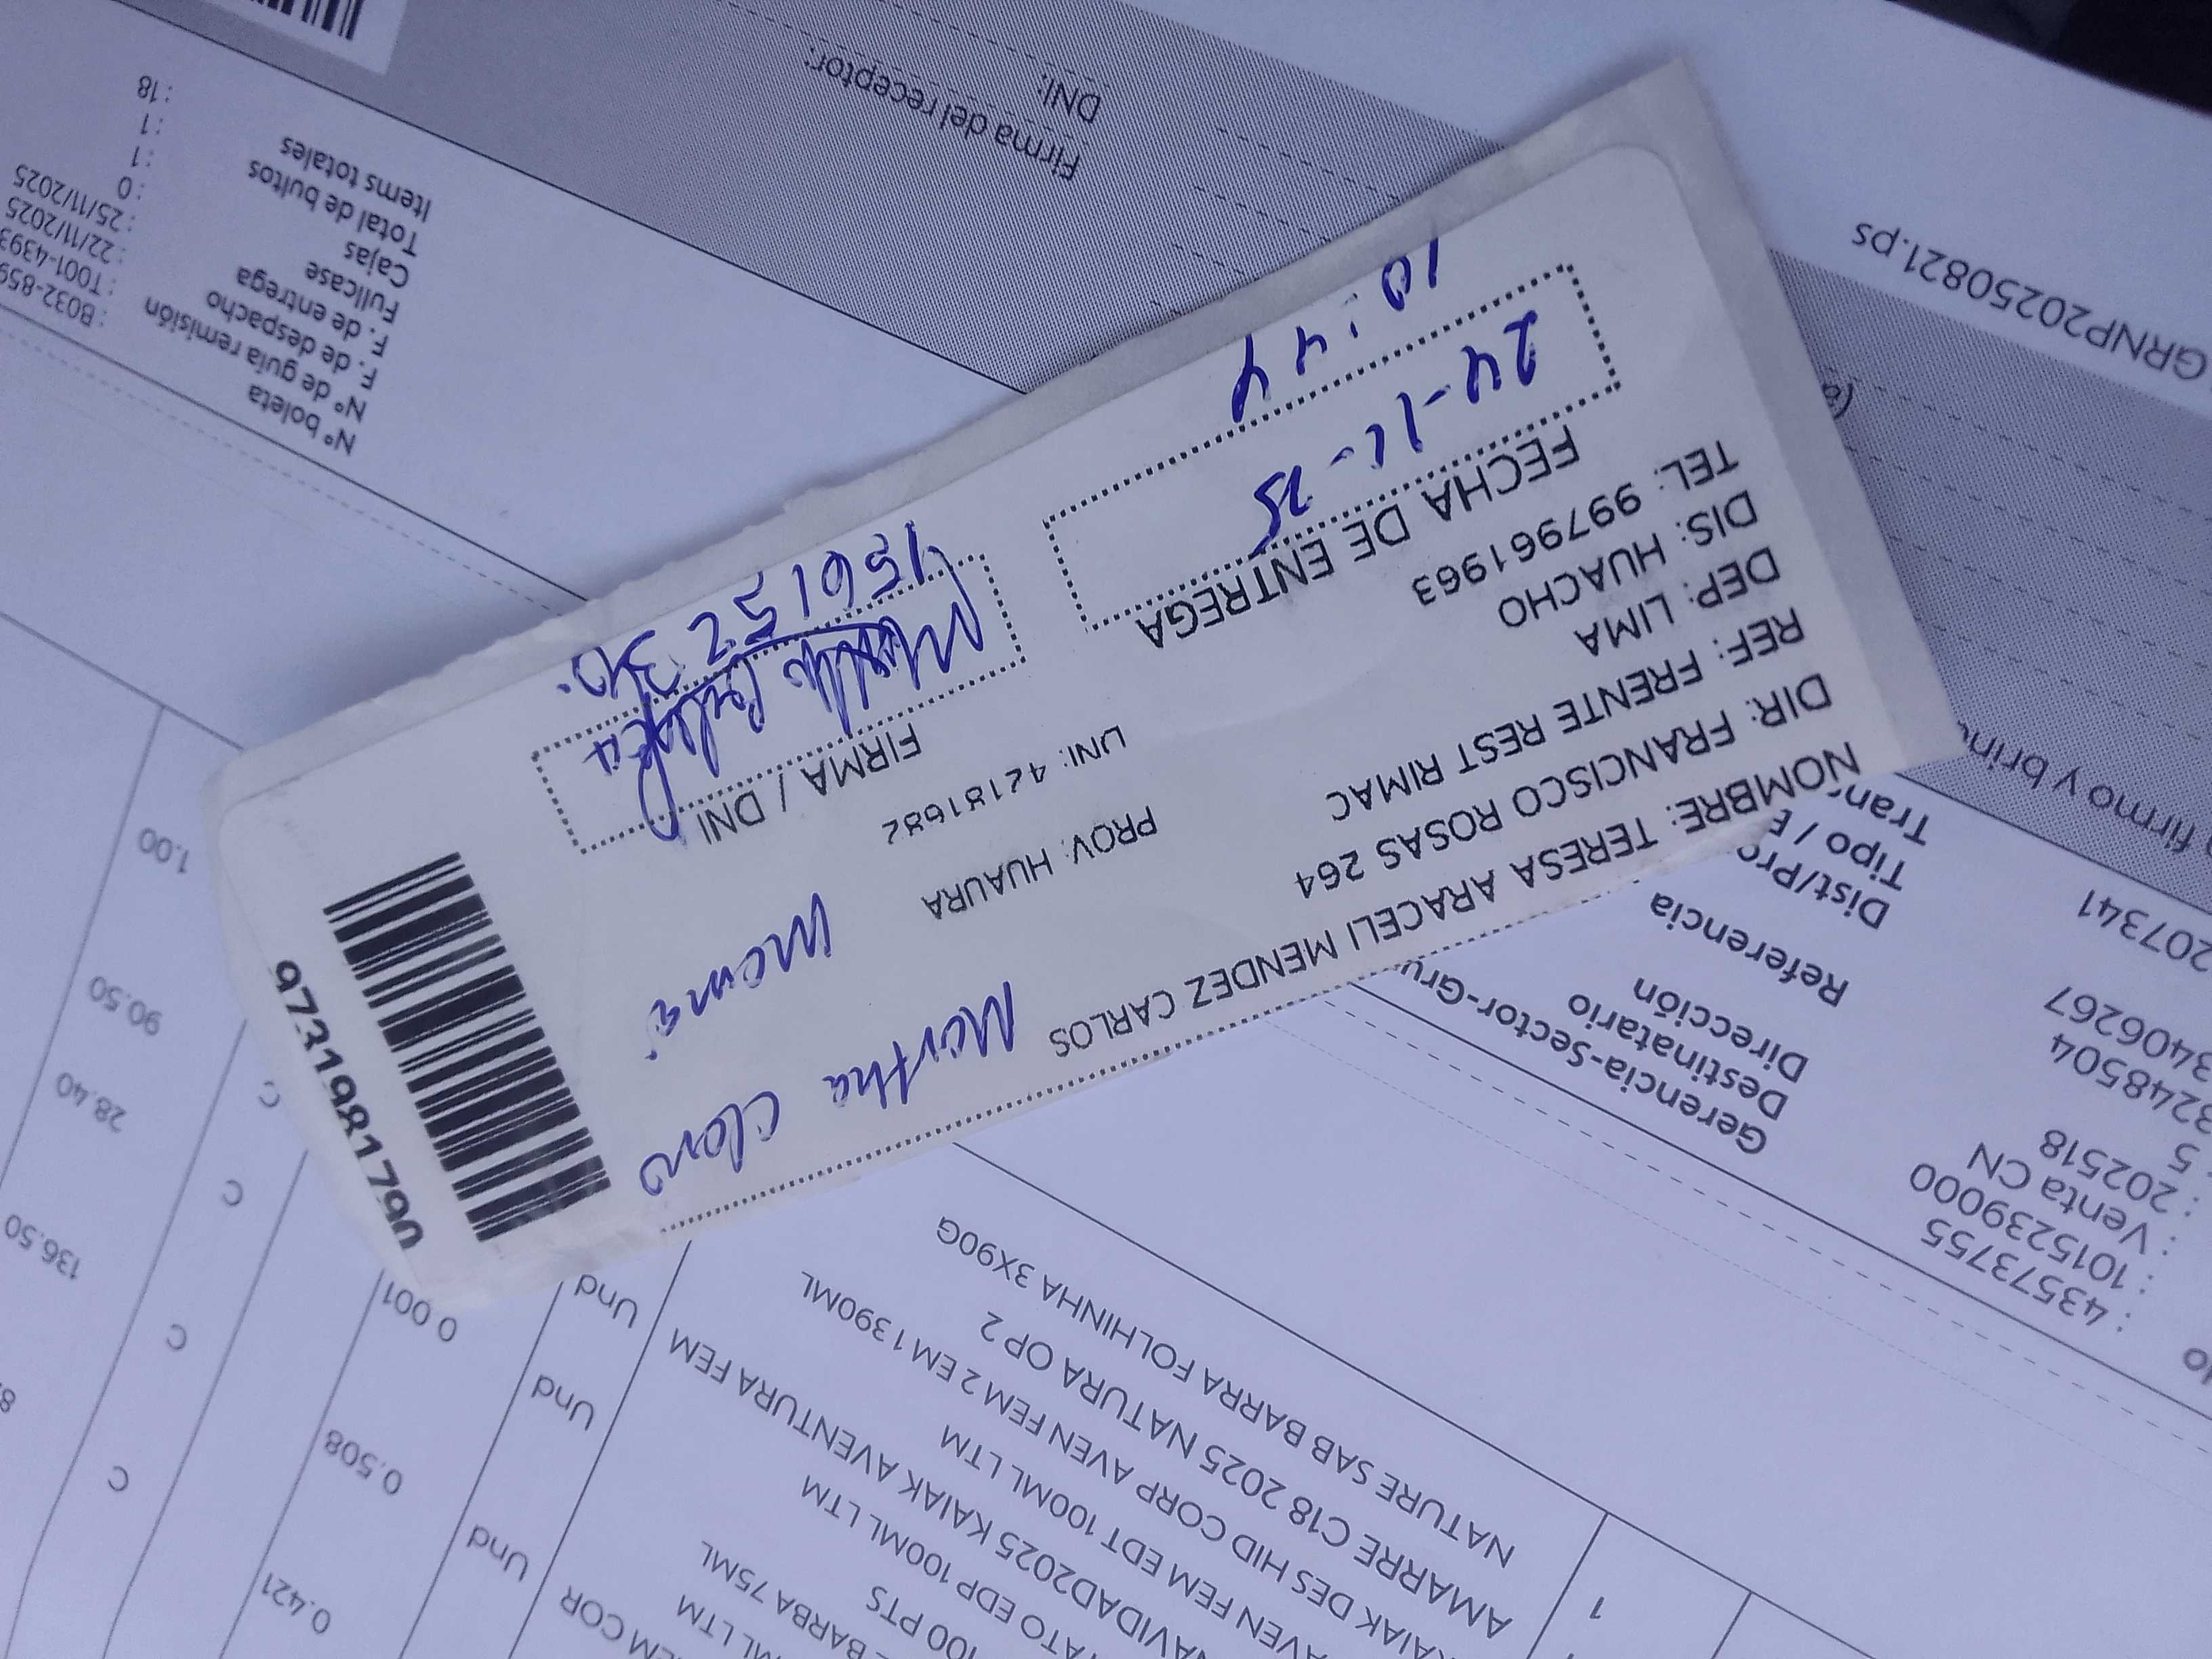 NOMBRE: TERESA ARACELI MENDEZ CARLOS
DIR: FRANCISCO ROSAS 264
REF: FRENTE REST RIMAC
DEP: LIMA
PROV: HUAURA
DIS: HUACHO
TEL: 997961963
DNI: 42181682
FECHA DE ENTREGA
24-11-25
10:44
FIRMA / DNI
15615236
Martha Claro
9731981790
GRNP20250821.ps
Firma del receptor:
DNI:
Nº boleta : B032-859
Nº de guía remisión : T001-4393
F. de despacho : 22/11/2025
F. de entrega : 25/11/2025
Fullcase : 0
Cajas : 1
Total de bultos : 1
Items totales : 18
firmo y brin
207341
: 43573755
: 1015239000
: Venta CN
: 202518
: 5
3248504
3406267
Gerencia-Sector-Gru
Destinatario
Dirección
Referencia
Dist/Pro
Tipo / E
Tran
1 NATURE SAB BARRA FOLHINHA 3X90G Und 0.001 C 1.00
AMARRE C18 2025 NATURA OP 2 Und 0.508 C 90.50
KAIAK DES HID CORP AVEN FEM 2 EM 1 390ML Und 0.421 C 28.40
AVEN FEM EDT 100ML LTM C 136.50
NAVIDAD2025 KAIAK AVENTURA FEM
ATO EDP 100ML LTM
100 PTS
BARBA 75ML
ML LTM
EM COR